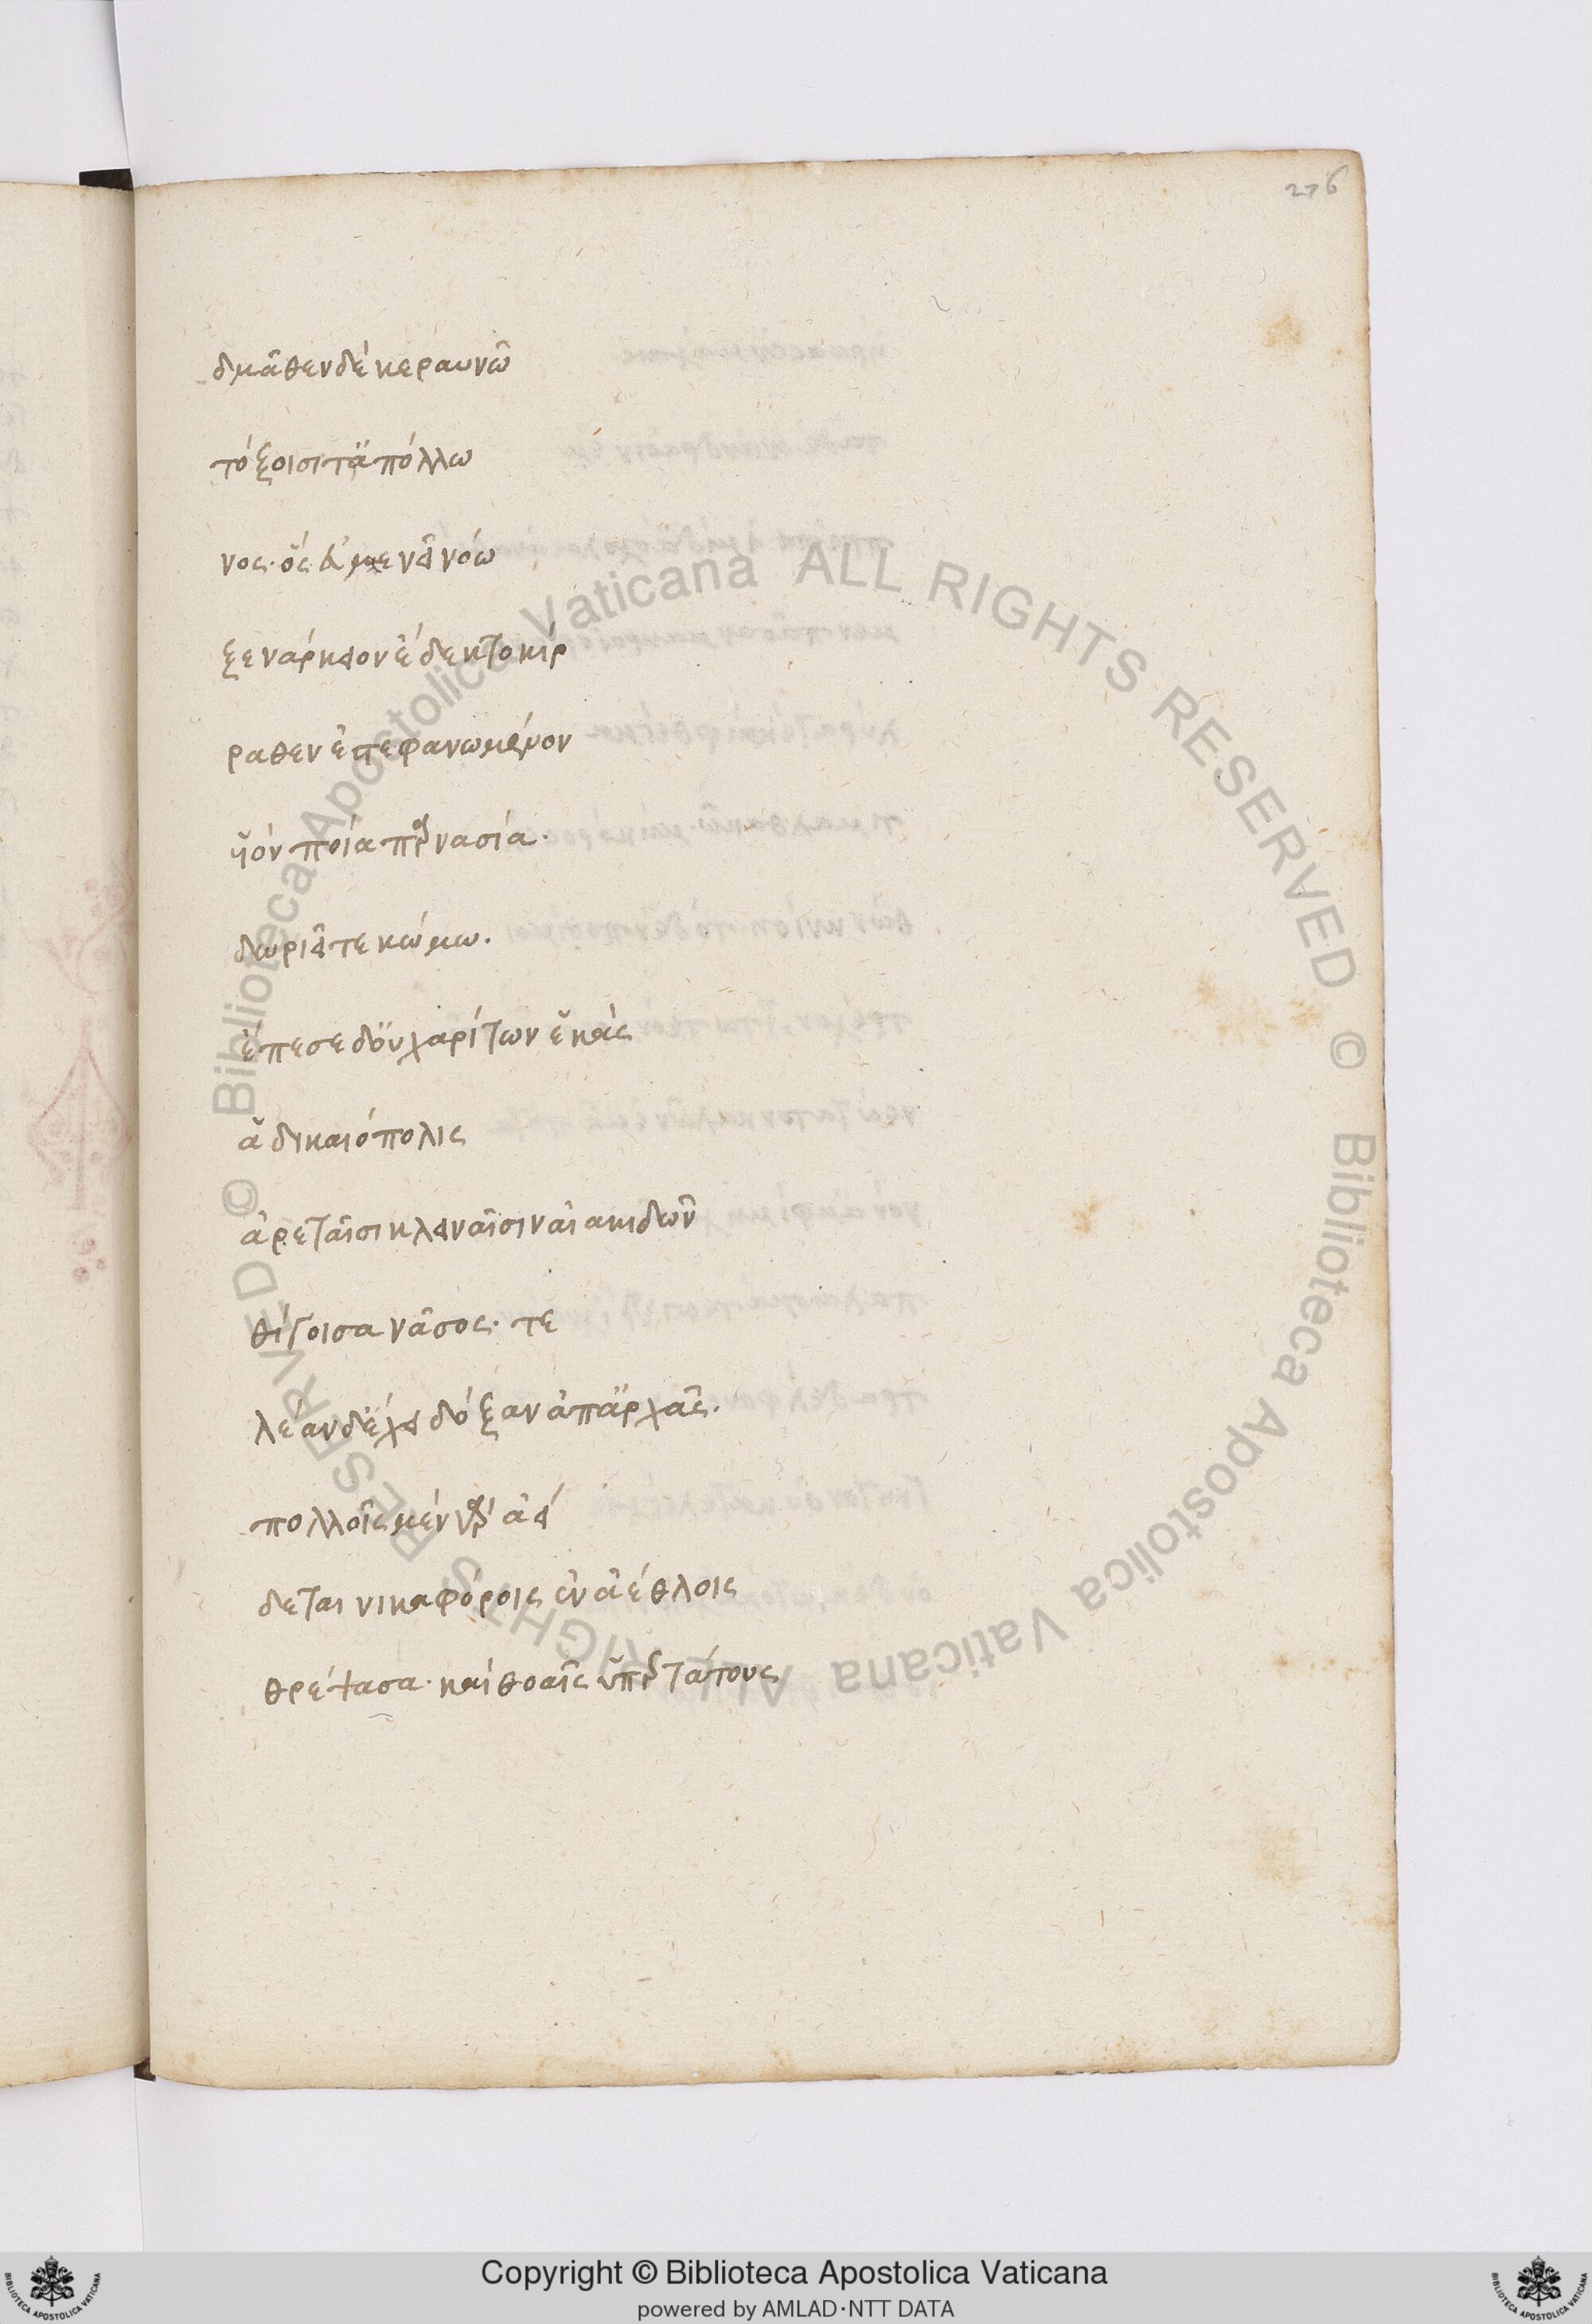 276
δμᾶθεν δὲ κεραυνῶ
τόξοισί τ' ἀπόλλω
νος· ὃς εὐμενεῖ νόω
ξενάρκειον ἔδεκτο κίρ
ραθεν ἐστεφανωμένον
υἱὸν ποία παρνασία·
δωριεῖ τε κώμω.
ἔπεσε δ' οὐ χαρίτων ἑκὰς
ἁ δικαιόπολις
ἀρεταῖσι κλειναῖσιν αἰακιδῶν
θίγοισα νᾶσος· τε
λέαν δ' ἔχει δόξαν ἀπ' ἀρχᾶς.
πολλοῖς μὲν γὰρ ἀεί
δεται νικαφόροις ἐν ἀέθλοις
θρέψασα· καὶ θοαῖς ὑπερτάτους
© Biblioteca Apostolica Vaticana ALL RIGHTS RESERVED © Biblioteca Apostolica Vaticana ALL RIGHTS RESERVED
Copyright © Biblioteca Apostolica Vaticana
powered by AMLAD·NTT DATA
BIBLIOTECA APOSTOLICA VATICANA
BIBLIOTECA APOSTOLICA VATICANA